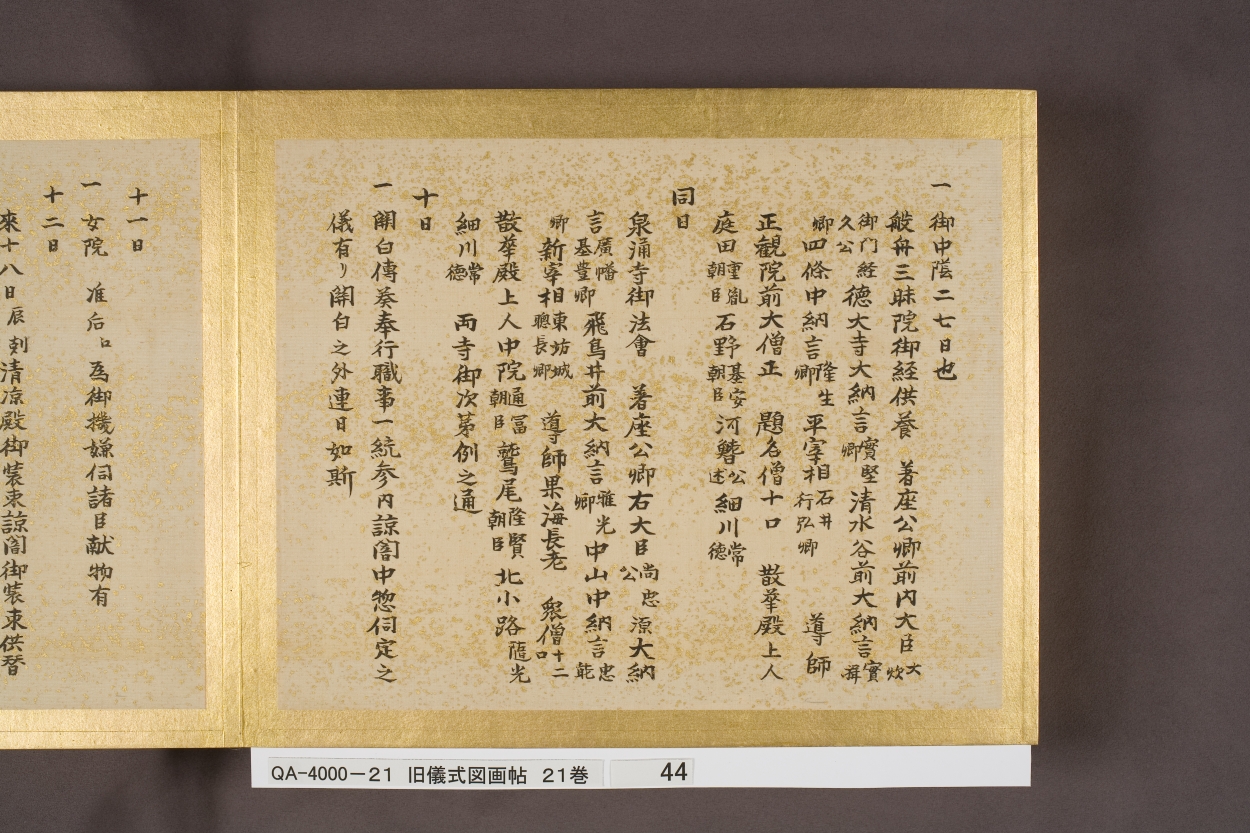 一 御中陰二七日也
般舟三昧院御経供養 著座公卿前内大臣大炊
御門経久公徳大寺大納言實堅卿清水谷前大納言實揖
卿四條中納言隆生卿平宰相石井行弘卿 導師
正観院前大僧正 題名僧十口 散華殿上人
庭田重胤朝臣石野基安朝臣河鰭公述細川常徳
同日
泉涌寺御法會 著座公卿右大臣尚忠公源大納
言廣幡基豊卿飛鳥井前大納言雅光卿中山中納言忠能
卿新宰相東坊城聰長卿 導師果海長老 衆僧十二口
散華殿上人中院通冨朝臣鷲尾隆賢朝臣北小路随光
細川常徳 両寺御次第例之通
十日
一 関白傳奏奉行職事一統参内諒闇中惣伺定之
儀有リ関白之外連日如斯
十一日
一 女院 准后ロ為御機嫌伺諸臣献物有
十二日
來十八日辰刻清凉殿御装束諒闇御装束供替
QA-4000-21 旧儀式図画帖 21巻 44